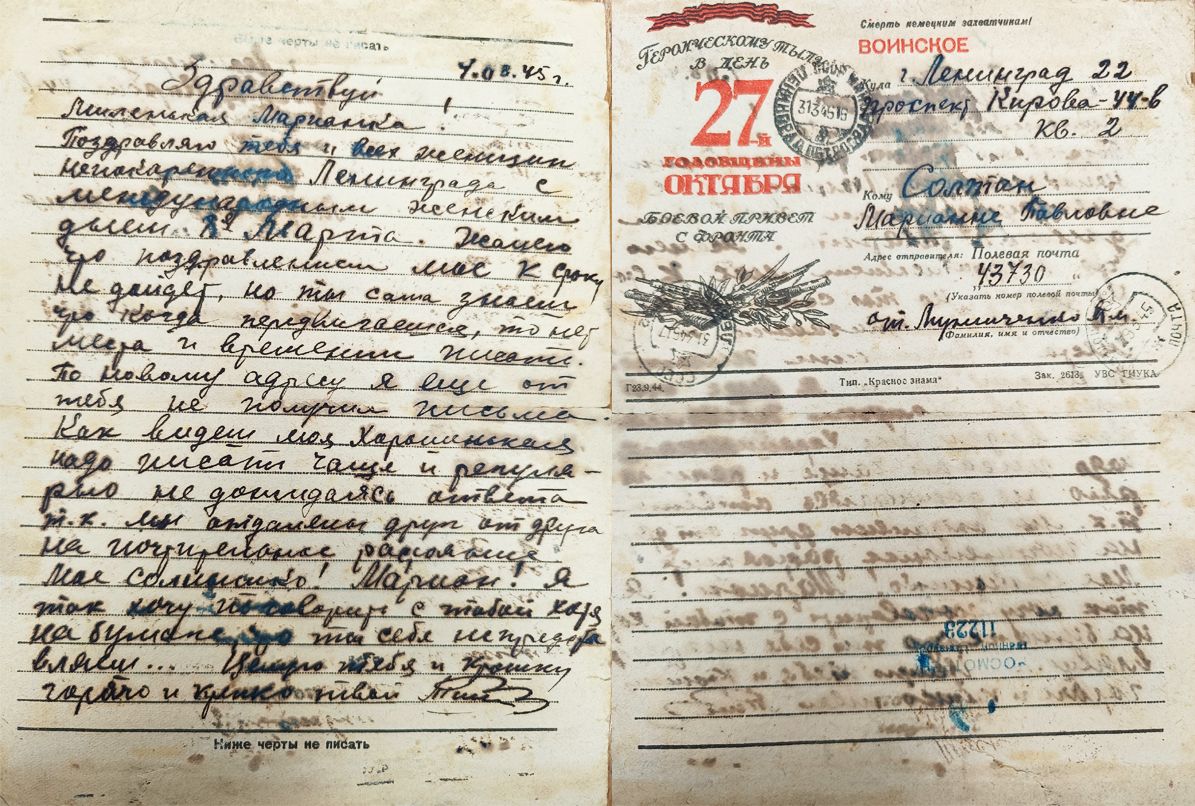 Выше черты не писать
4.03.45 г.
Здравствуй
Миленькая Марианка!
Поздравляю тебя и всех женщин
Ленинграда с
международным женским
днем 8е Марта. Жалею
что поздравление мое к сроку
не дойдет, но ты сама знаеш
что когда передвигаешся, то нет
места и времени писать.
По новому адресу я еще от
тебя не получил письма
Как видеш моя хорошинская
надо писать чаще и регуля-
рно не дожидаясь ответа
т.к. мы отдалены друг от друга
на почтительное растояние
Мое солнышко! Мариан! Я
так хочу поговорить с тобой хотя
на бумаге что ты себе не предста
вляеш... Целую тебя и крошку
горячо и крепко твой
Ниже черты не писать
Смерть немецким захватчикам!
ВОИНСКОЕ
ГЕРОИЧЕСКОМУ ТЫЛУ
В ДЕНЬ
27-й
ГОДОВЩИНЫ
ОКТЯБРЯ
БОЕВОЙ ПРИВЕТ
С ФРОНТА
Куда г. Ленинград 22
проспект Кирова-44-в
кв. 2
Кому Солтан
Марианне Павловне
Адрес отправителя: Полевая почта
43730
(Указать номер полевой почты)
от.
Фамилия, имя и отчество)
Г23.9.44. Тип. „Красное знамя" Зак. 2613. УВС ГИУКА
11223